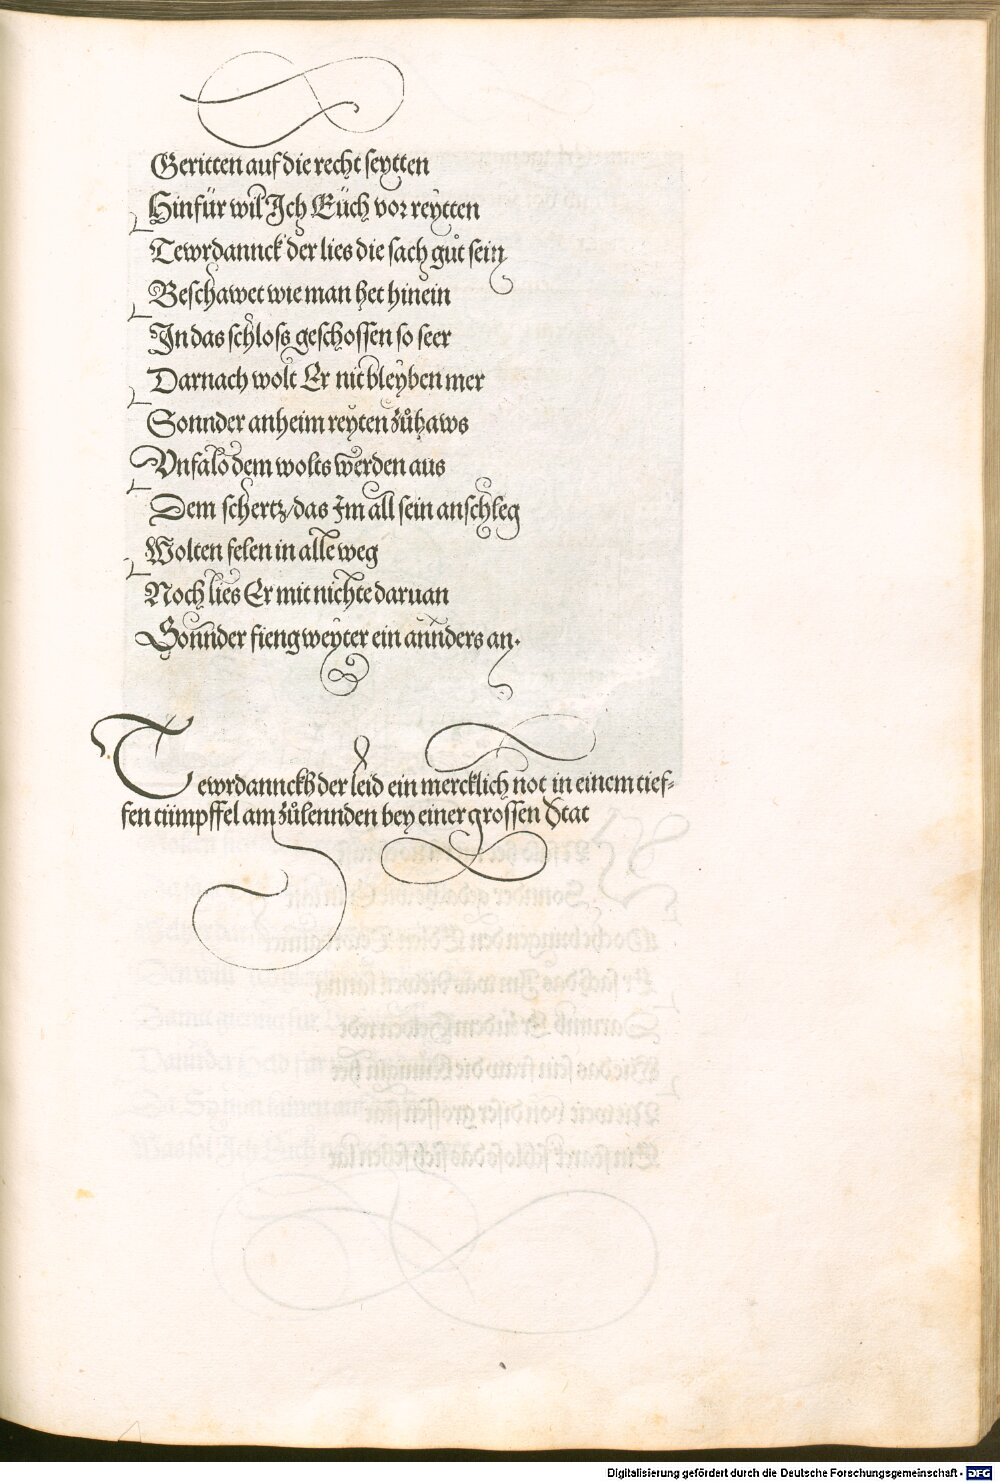 Geritten auf die recht seytten
Hinfür wil Ich Eüch vor reytten
Tewrdannck der lies die sach gůt sein
Beschawet wie man het hinein
In das schloss geschossen so seer
Darnach wolt Er nit bleyben mer
Sonnder anheim reyten zůhaws
Vnfalo dem wolts werden aus
Dem schertz/das Im all sein anschleg
Wolten felen in alle weg
Noch lies Er mit nichte daruan
Sonnder fieng weyter ein annders an.
Tewrdannckh der leid ein mercklich not in einem tief-
fen tümpffel am zůlennden bey einer grossen Stat
Digitalisierung gefördert durch die Deutsche Forschungsgemeinschaft - DFG